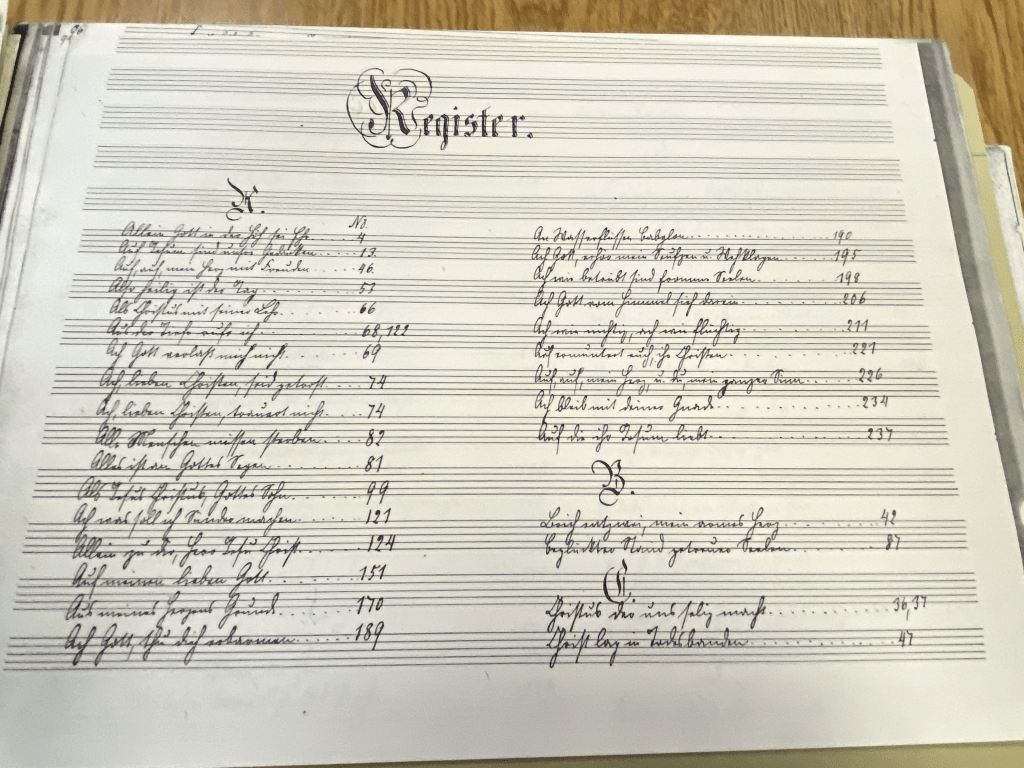 Register.
A.
No.
Allein Gott in der Höh sei Ehr..... 4
Auf Jesum sind unsre Gedanken..... 13.
Auf, auf, mein Herz mit Freuden..... 46.
Also heilig ist der Tag......... 51
Als Christus mit seiner Lehr........ 66
Aus der Tiefe rufe ich........ 68,122
Ach Gott verlaß mich nicht........ 69
Ach, lieben Christen, seid getrost.... 74
Ach, lieben Christen, trauert nicht.... 74
Alle Menschen müssen sterben..... 82
Alles ist an Gottes Segen........ 81
Als Jesus Christus, Gottes Sohn....... 99
Ach was soll ich Sünder machen........ 121
Allein zu dir, Herr Jesu Christ....... 124
Auf meinen lieben Gott......... 151
Aus meines Herzens Grunde........ 170
Ach Gott, thu dich erbarmen....... 189
An Wasserflüssen Babylon............... 190
Ach Gott, erhör mein Seufzen u. Wehklagen...... 195
Ach wie betrübt sind fromme Seelen......... 198
Ach Gott vom Himmel sieh darein......... 206
Ach wie nichtig, ach wie flüchtig.......... 211
Auf ermuntert euch, ihr Christen........... 221
Auf, auf, mein Herz, u. du mein ganzer Sinn..... 226
Ach bleib mit deiner Gnade............ 234
Auf die ihr Jesum liebt............. 237
B.
Brich entzwei, mein armes Herz........ 42
Beglückter Stand getreuer Seelen........ 87
C.
Christus der uns selig macht.......... 36,37
Christ lag in Todesbanden........... 47